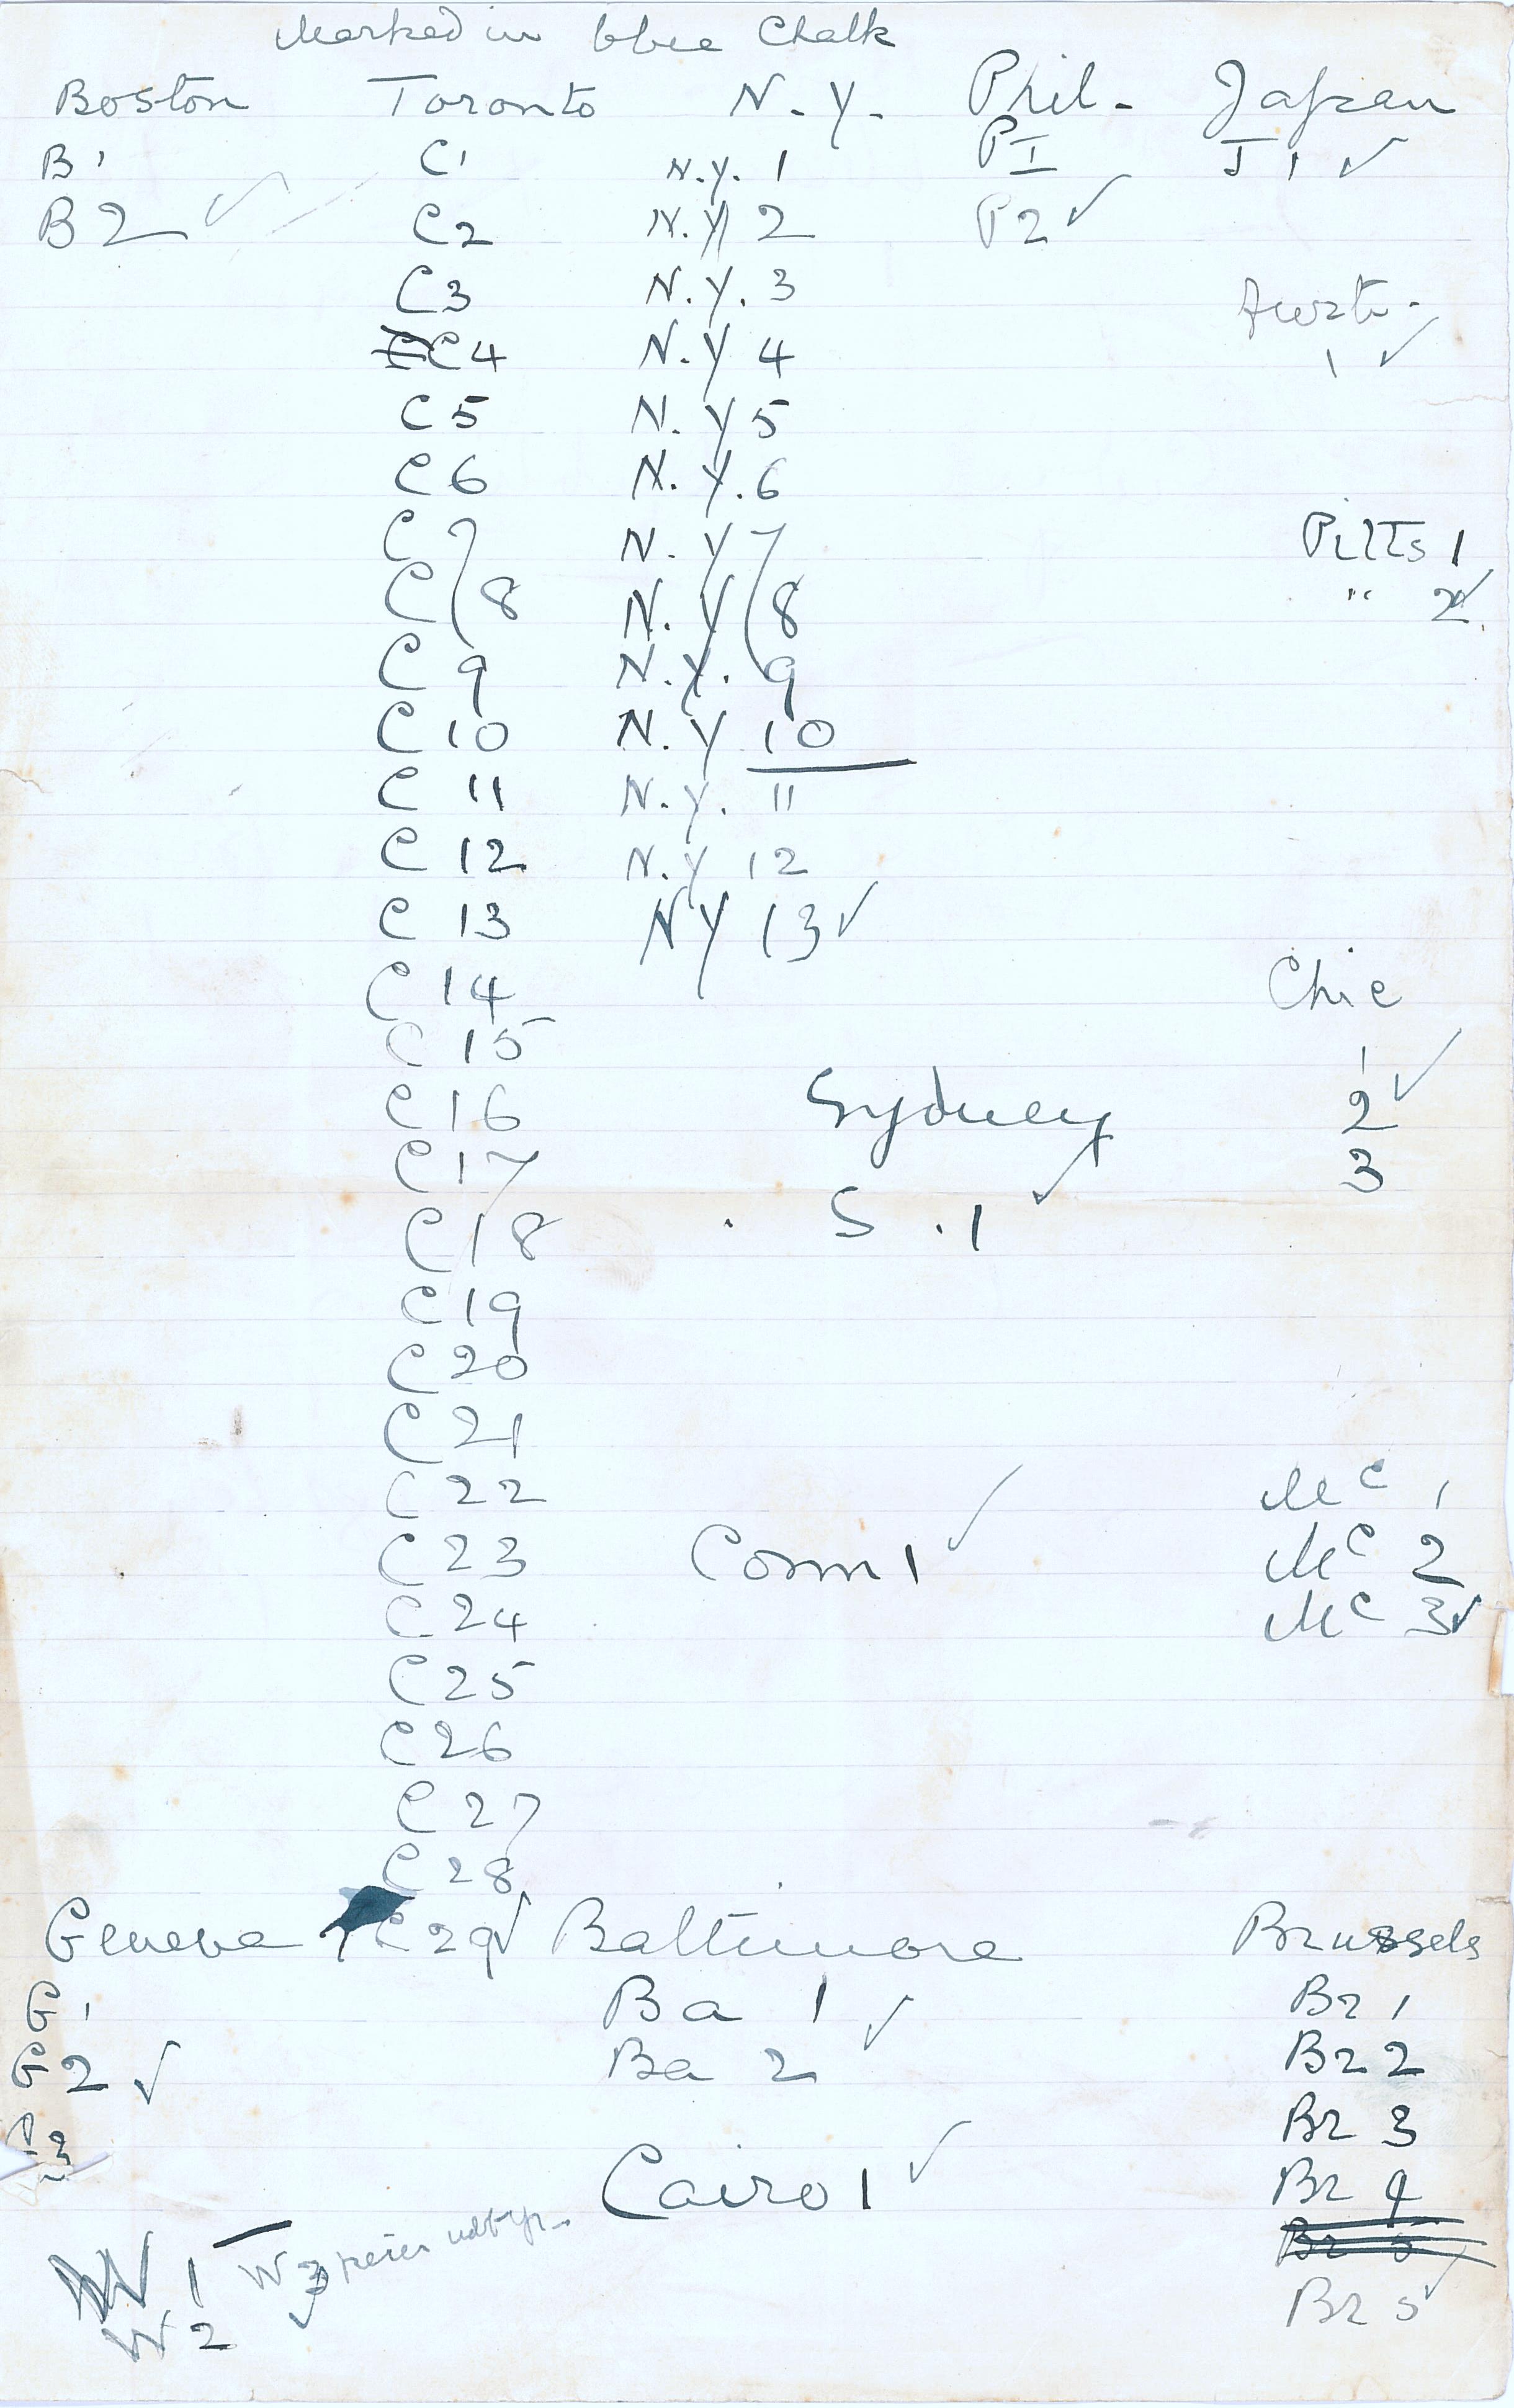 Marked in blue Chalk
Boston Toronto N.Y. Phil- Japan
B 1 C 1 N.Y. 1 P I J 1 ✓
B 2 ✓ C 2 N.Y 2 P 2 ✓
C 3 N.Y. 3
C 4 N.Y 4 1 ✓
C 5 N.Y 5
C 6 N.Y.6
C 7 N.Y 7 Pitts 1
C 8 N.Y 8 " 2 ✓
C 9 N.Y. 9
C 10 N.Y 10
C 11 N.Y. 11
C 12 N.Y 12
C 13 NY 13 ✓
C 14 Chic
C 15 1
C 16 Sydney 2 ✓
C 17 3
C 18 S.1 ✓
C 19
C 20
C 21
C 22 Mc 1
C 23 Conn 1 ✓ Mc 2
C 24 Mc 3 ✓
C 25
C 26
C 27
C 28
Geneva C 29 ✓ Baltimore Brussels
G 1 Ba 1 ✓ Br 1
G 2 ✓ Ba 2 Br 2
G 3 Br 3
Cairo 1 ✓ Br 4
Br 5
W 1 W 3 ✓ Br 5 ✓
W 2